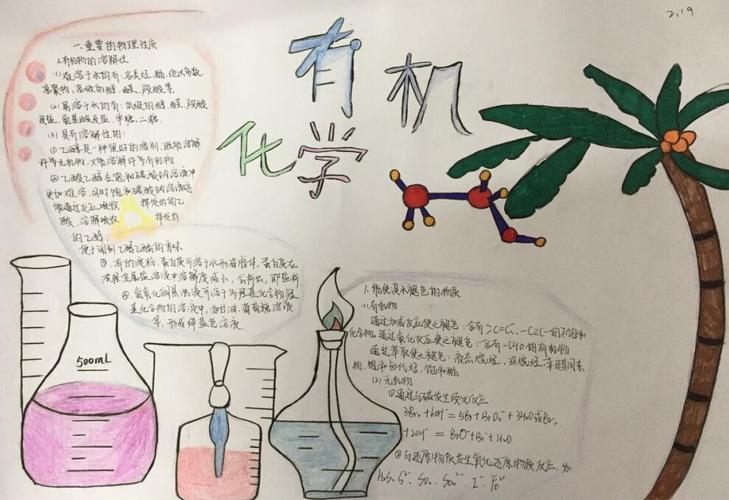 2.19
有机
化学
一.重要的物理性质
1.有机物的溶解性
(1)难溶于水的有:各类烃、酯、绝大多数
高聚物、高级的醇、醛、羧酸等
(2)易溶于水的有:低级的醇、醛、羧酸
盐、氨基酸及盐、单糖、二糖
(3)具有溶解性的:
①乙醇是一种很好的溶剂,既能溶解
许多无机物,又能溶解许多有机物
②乙酸乙酯在饱和碳酸钠溶液中
更加难溶,同时饱和碳酸钠溶液还
能通过反应吸收 挥发出的乙
酸,溶解吸收 挥发出
的乙醇,
便于闻到乙酸乙酯的香味
③有的淀粉、蛋白质可溶于水形成胶体,蛋白质在
浓轻金属盐溶液中溶解度减小,会析出,即盐析
④氢氧化铜悬浊液可溶于多羟基化合物
基化合物的溶液中,如甘油、葡萄糖溶液
等,形成绛蓝色溶液
500mL
1.能使溴水褪色的物质
(1)有机物
通过加成反应使之褪色:含有>C=C<、-C≡C-的不饱和
化合物,通过氧化反应使之褪色:含有-CHO的有机物
通过萃取使之褪色:液态烷烃、环烷烃、苯及其同系
物、饱和卤代烃、饱和酯
(2)无机物
①通过与碱发生歧化反应
3Br₂+6OH⁻=5Br⁻+BrO₃⁻+3H₂O或Br₂
+2OH⁻=BrO⁻+Br⁻+H₂O
②与还原物质发生氧化还原物质反应,如
H₂S、S²⁻、SO₂、SO₃²⁻、I⁻、Fe²⁺